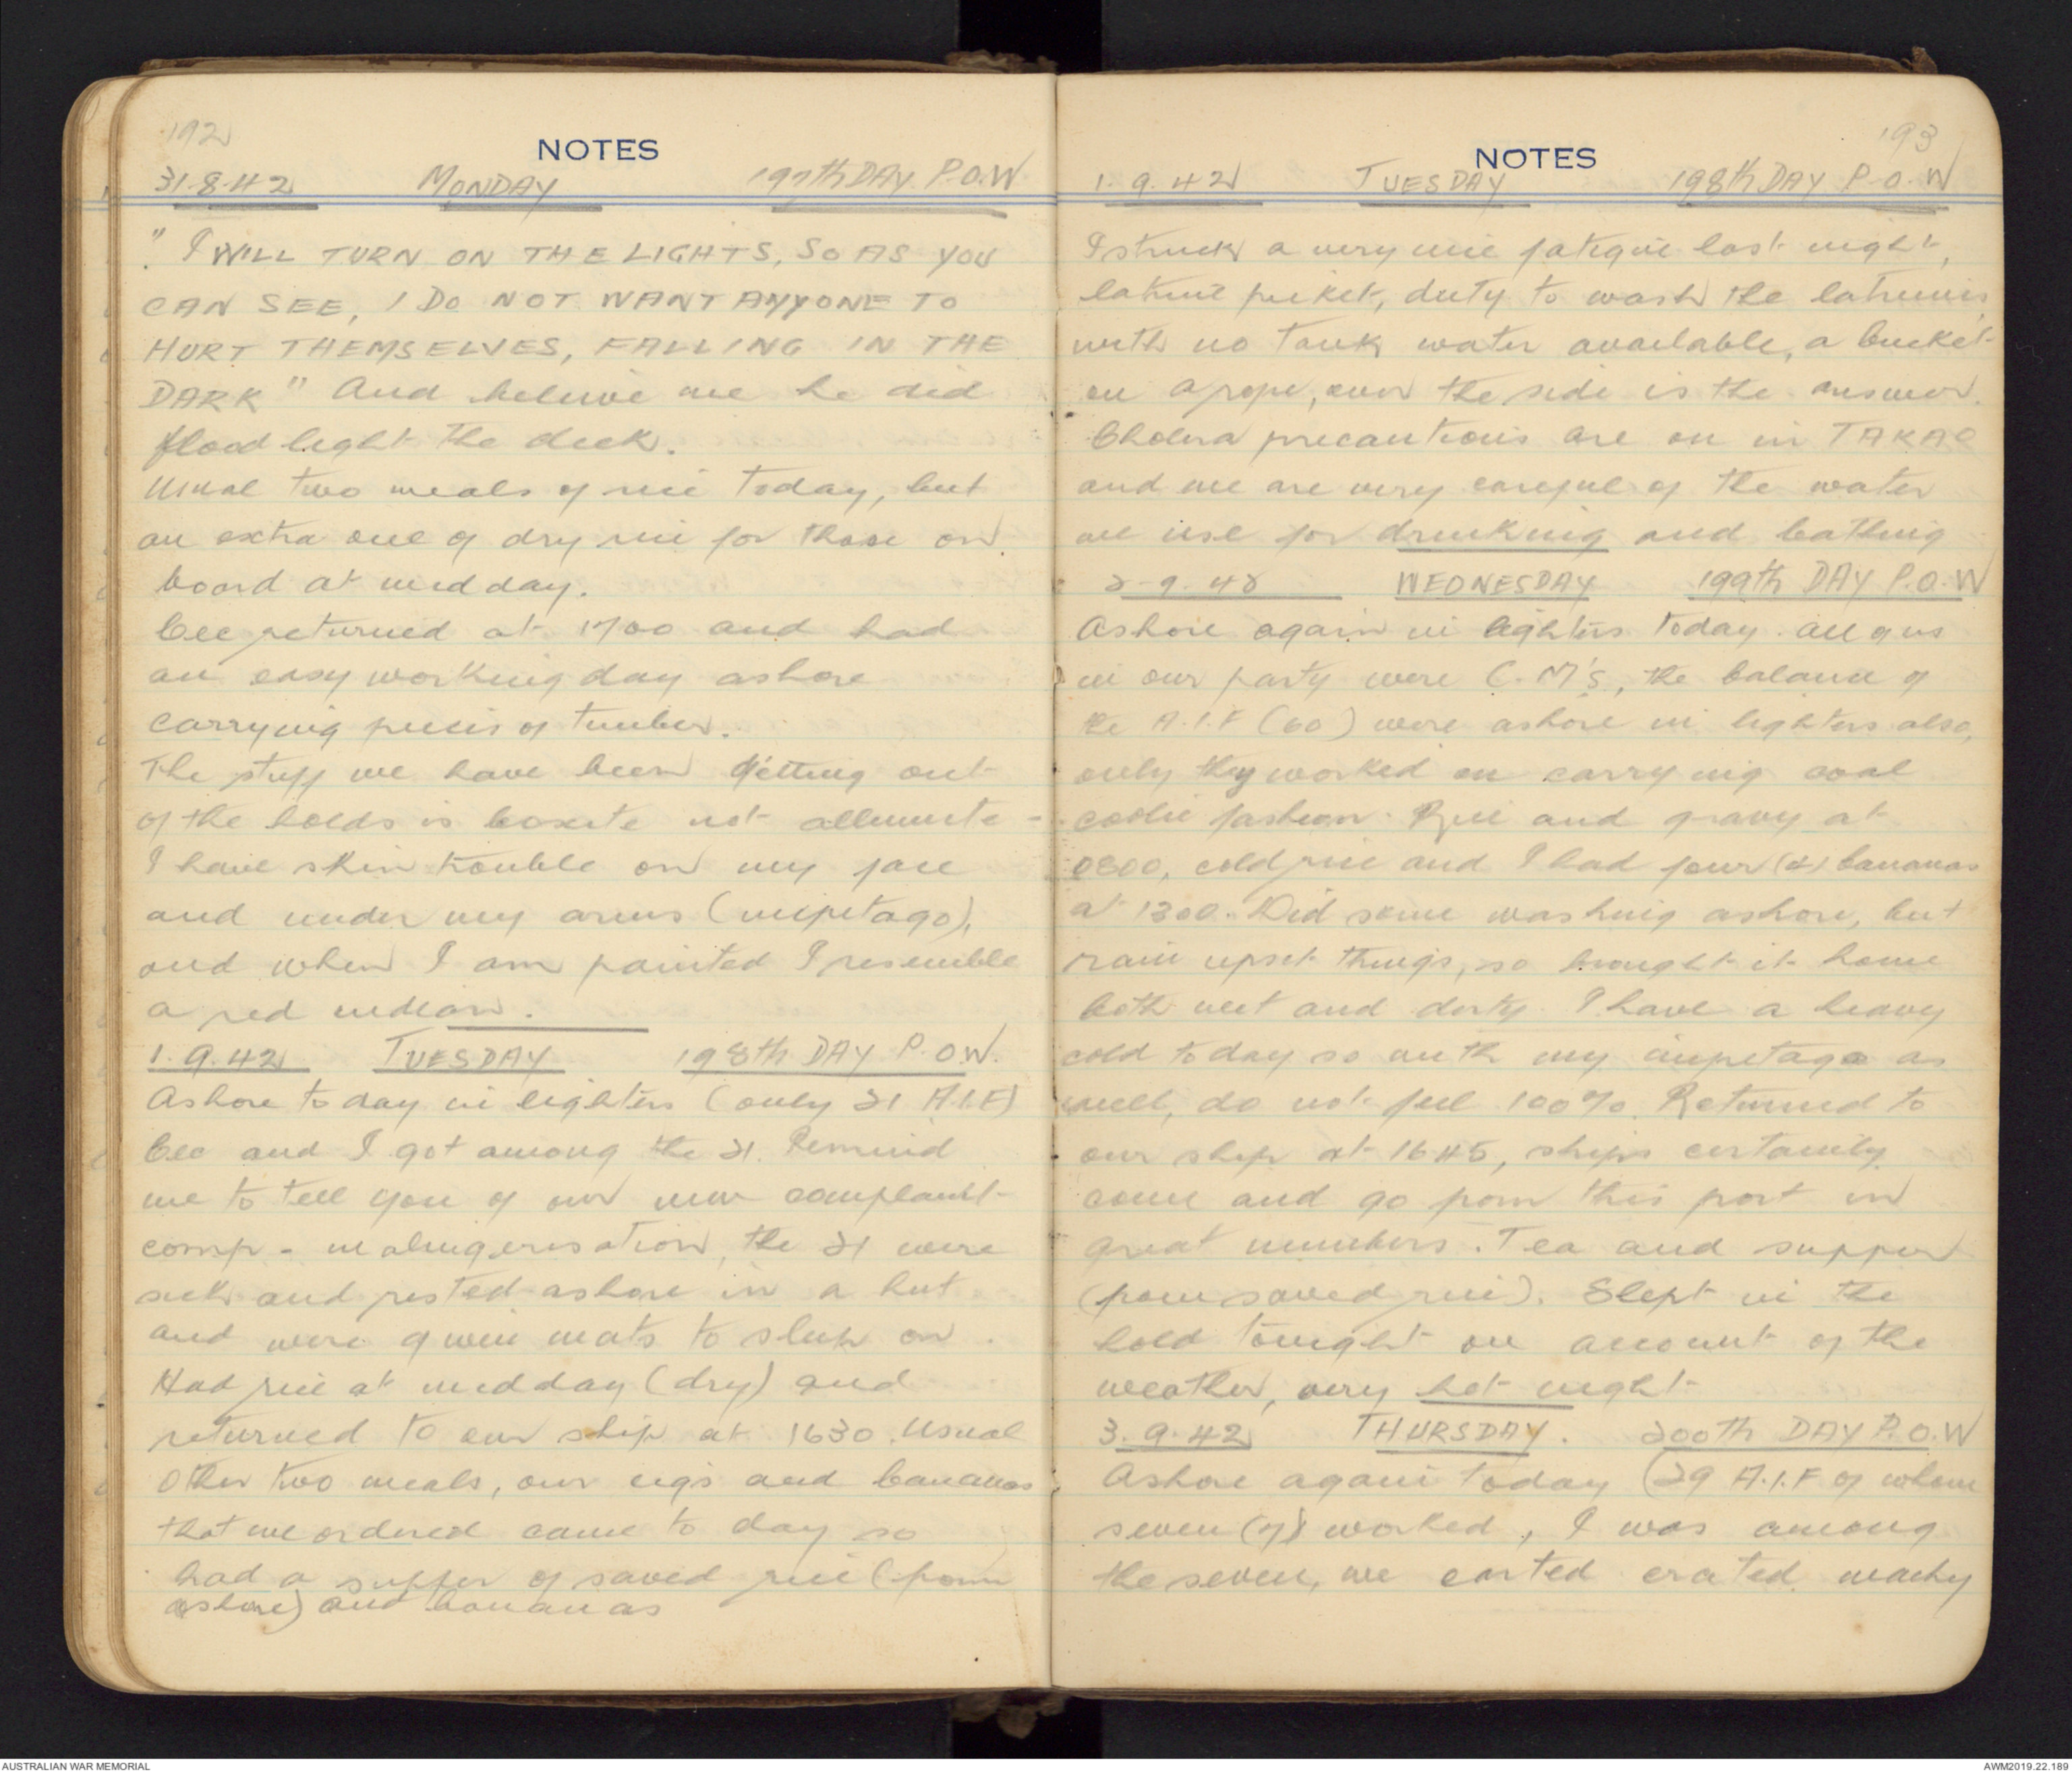 192
NOTES
31.8.42 MONDAY 197th DAY P.O.W
"I WILL TURN ON THE LIGHTS, SO AS YOU
CAN SEE, I DO NOT WANT ANYYONE TO
HURT THEMSELVES, FALLING IN THE
DARK" And believe me he did
flood light the deck.
Usual two meals of rice today, but
an extra one of dry rice for those on
board at midday.
Cec returned at 1700 and had
an easy working day ashore
carrying pieces of timber.
The stuff we have been getting out
of the holds is boxite not
I have skin trouble on my face
and under my arms (impetago),
and when I am painted I resemble
a red indian.
1.9.42 TUESDAY 198th DAY P.O.W.
Ashore today in lighters (only 21 A.I.F)
Cec and I got among the 21. Remind
me to tell you of our new complaint
comp - malingerisation, the 21 were
sick and rested ashore in a hut
and were given mats to sleep on.
Had rice at midday (dry) and
returned to our ship at 1630. Usual
other two meals, our cigs and bananas
that we ordered came to day so
had a supper of saved rice (from
ashore) and bananas
193
NOTES
1.9.42 TUESDAY 198th DAY P.O.W
I struck a very nice fatigue last night,
latrine picket, duty to wash the latrines
with no tank water available, a bucket
on a rope, over the side is the answer.
Cholera precautions are on in TAKAO
and we are very careful of the water
we use for drinking and bathing
2-9-42 WEDNESDAY 199th DAY P.O.W
Ashore again in lighters today. all of us
in our party were C.M's, the balance of
the A.I.F (60) were ashore in lighters also,
only they worked on carrying coal
coolie fashion. Rice and gravy at
0800, cold rice and I had four (4) bananas
at 1300. Did some washing ashore, but
rain upset things, so brought it home
both wet and dirty. I have a heavy
cold today so with my impetago as
well, do not feel 100%. Returned to
our ship at 1645, ships certainly
come and go from this port in
great numbers. Tea and supper
(from saved rice). Slept in the
hold tonight on account of the
weather, very hot night
3.9.42 THURSDAY. 200th DAY P.O.W
Ashore again today (29 A.I.F of whom
seven (7) worked, I was among
the seven, we carted crated machy
AUSTRALIAN WAR MEMORIAL
AWM2019.22.189